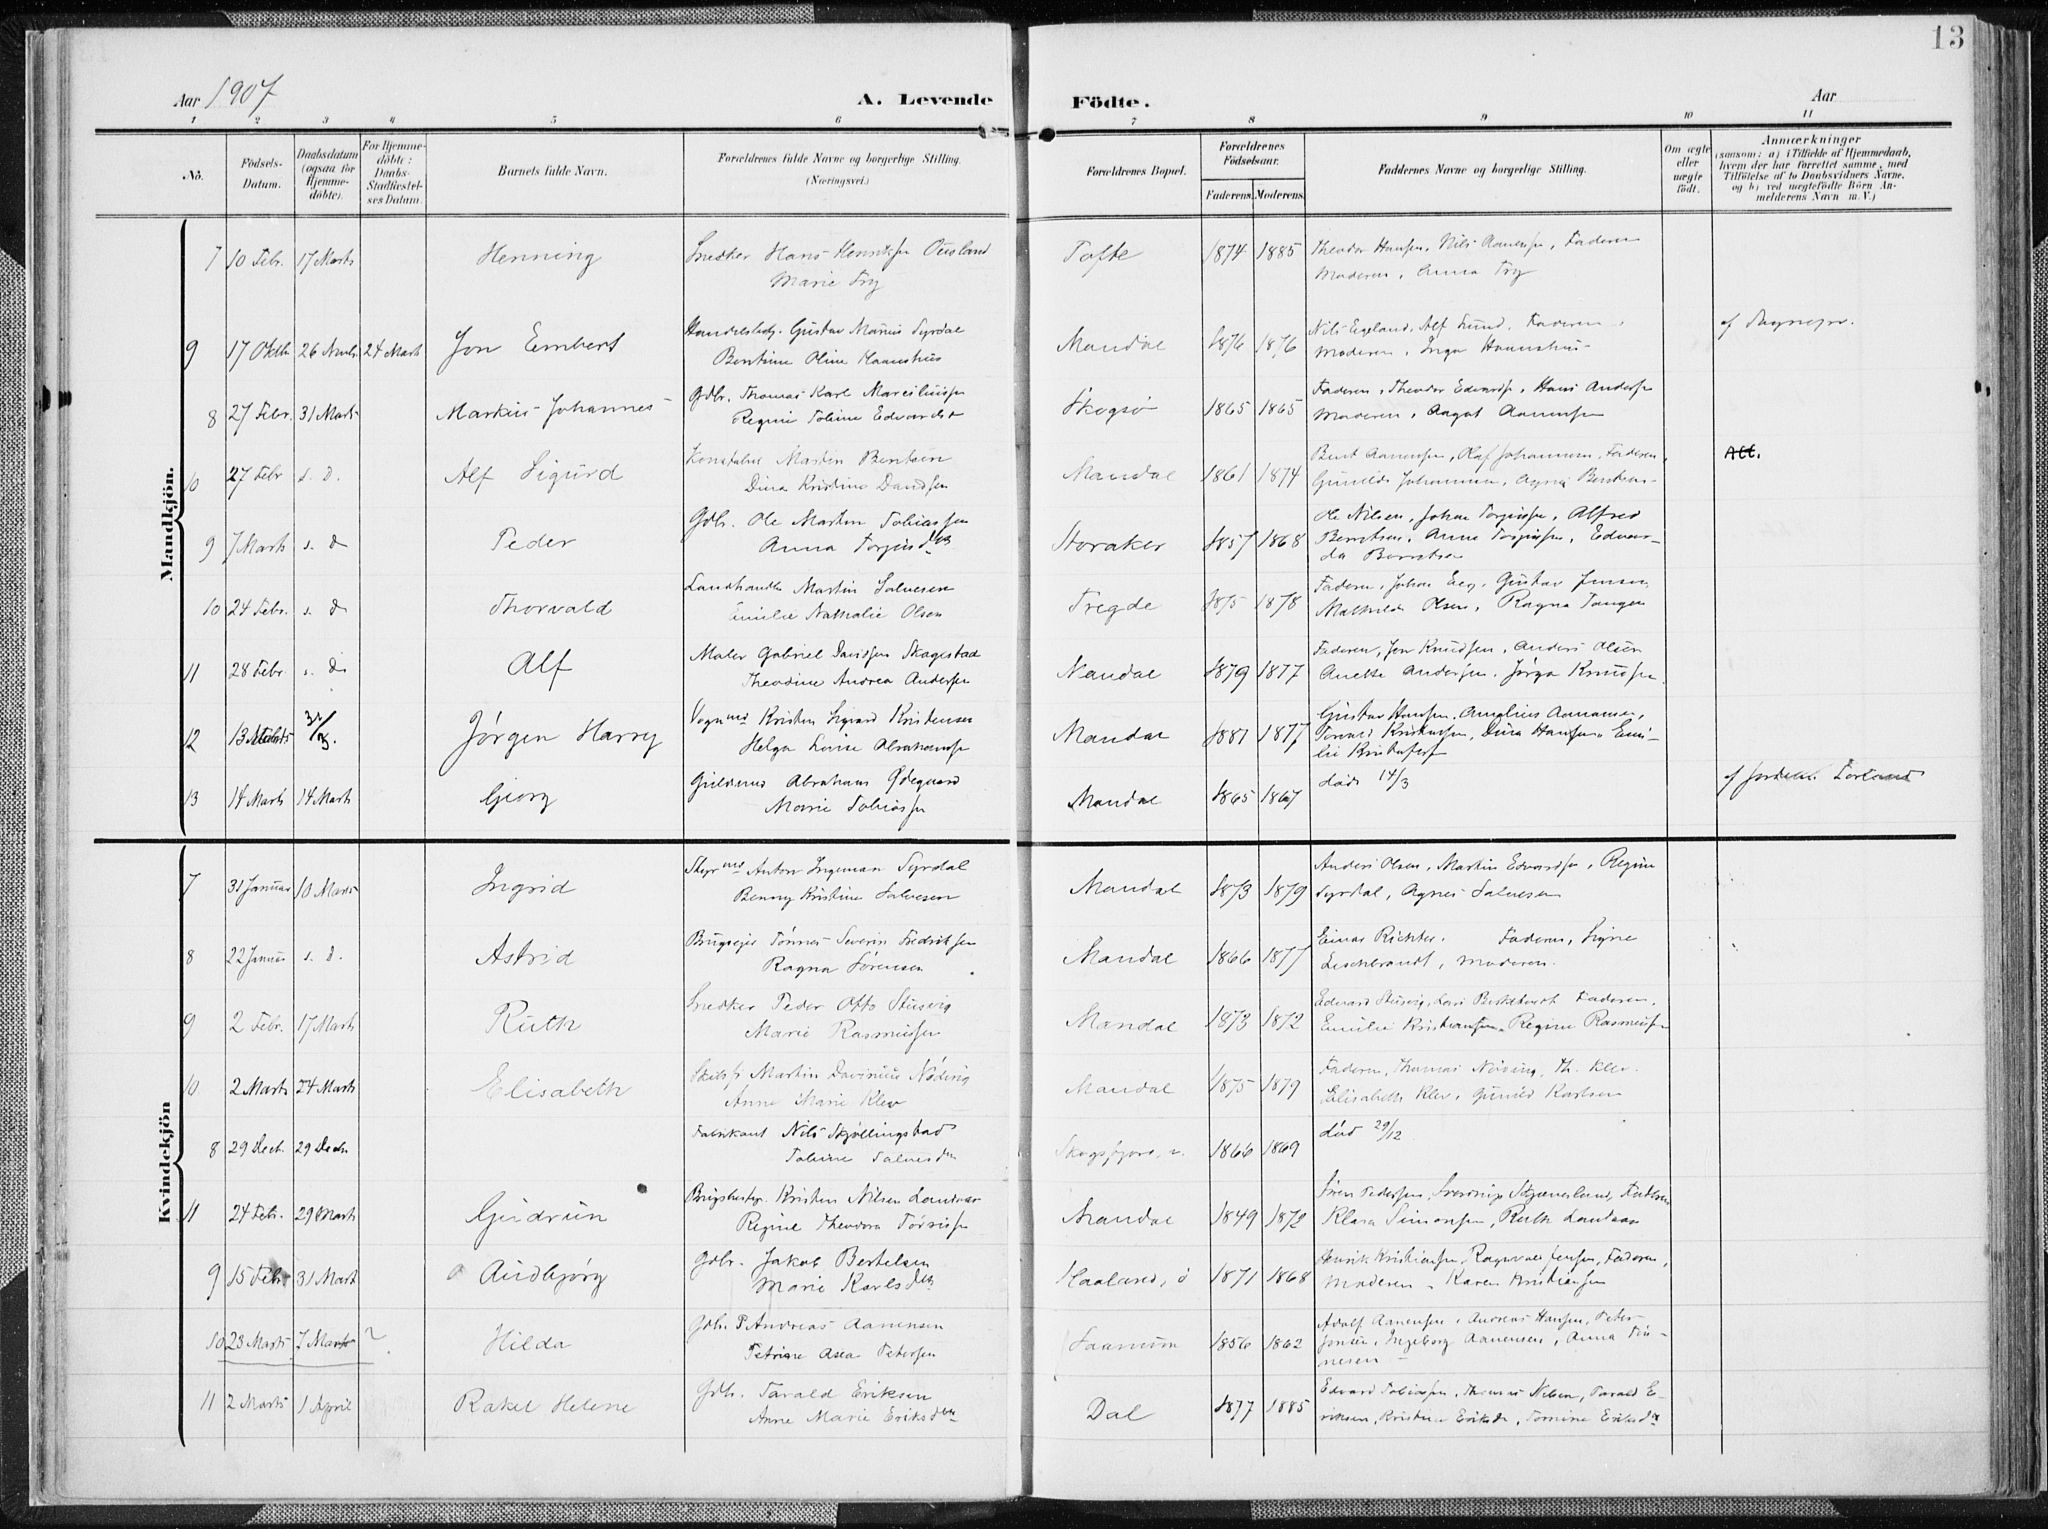 13
Aar 1907
A. Levende Födte.
Aar
1 2 3 4 5 6 7 8 9 10 11
No.
Födsels-Datum.
Daabsdatum (ogsaa for Hjemmedöbte).
For Hjemmedöbte: Daabs-Stadfæstelses Datum.
Barnets fulde Navn.
Forældrenes fulde Navne og borgerlige Stilling. (Næringsvei.)
Forældrenes Bopæl.
Forældrenes Födselsaar.
Faderens. Moderens.
Faddernes Navne og borgerlige Stilling.
Om ægte eller uægte födt.
Anmærkninger
(saasom: a) i Tilfælde af Hjemmedaab, hvem der har forrettet samme, med Tilföielse af to Daabsvidners Navne, og b) ved uægtefödte Börn Anmelderens Navn m. V.)
Mandkjön.
7 10 Febr. 17 Marts Henning Snedker Hans Henriksen Ousland Tofte 1874 1885 Theodor Hansen, Nils Aanensen, Faderen
Marie Try Moderen, Anna Try
9 17 Oktb. 26 Novb. 24 Mart Jon Embert Handelsbetj. Gustav Marius Syrdal Mandal 1876 1876 Nils Egeland, Alf Lund, Faderen
Bentine Oline Haanshus Moderen, Inga Haanshus
8 27 Febr. 31 Marts Markus Johannes Gdbr. Thomas Karl Marciliussen Skogsø 1865 1865 Faderen, Theodor Edvardsen, Hans Andersen
Regine Tobine Edvardsd. Moderen, Aagot Aanensen
10 27 Febr s. D. Alf Sigurd Konstabel Martin Bentsen Mandal 1861 1874 Bent Aanensen, Olaf Johannesen, Faderen, Att.
Dina Kristine Davidsen Gunild Johannesen, Agnes Bentsen
9 7 Marts s. d Peder Gdbr. Ole Martin Tobiassen Storaker 1857 1868 Ole Nilsen, Johan Torgiussen, Alfred
Anna Torgiusdtr Berntsen, Anne Torgiussen, Edvar-
da Berntsen
10 24 Febr. s. d Thorvald Landhandler Martin Salvesen Tregde 1875 1878 Faderen, Johan Eeg, Gustav Jensen,
Emilie Nathalie Olsen Mathilde Olsen, Ragna Tangen
11 28 Febr. s. D Alf Maler Gabriel Davidsen Skagestad Mandal 1879 1877 Faderen, Jon Knudsen, Anders Olsen
Theodine Andrea Andersen Anette Andersen, Jørga Knudsen
12 13 Marts 31/3. Jørgen Harry Vognmd Kristen Sigvard Kristensen Mandal 1881 1877 Gustav Hansen, Angelius Aanensen,
Helga Lovise Abrahamsen Torvald Kristensen, Dina Hansen, Emi-
lie Kristofersen
13 14 Marts 14 Marts Georg Abraham Ødegaard Mandal 1865 1867 død 14/3 af Jordem. Torland
Marie Tobiassen
Kvindekjön
7 31 Januar 10 Marts Ingrid Styrmd Anton Ingeman Syrdal Mandal 1873 1879 Anders Olsen, Martin Edvardsen, Regine
Benny Kristine Salvesen Syrdal, Agnes Salvesen
8 22 Januar s. d. Astrid Brugseier Tønnes Severin Fredriksen Mandal 1866 1877 Einar Richter. Faderen, Signe
Ragna Sørensen Leschbrandt, Moderen.
9 2 Febr. 17 Marts Ruth Snedker Peder Otto Stusvig Mandal 1873 1872 Edvard Stusvig, Faderen,
Marie Rasmussen Emilie Kristiansen, Regine Rasmussen
10 2 Marts 24 Marts Elisabeth Martin Nøding Mandal 1875 1879 Faderen, Thomas Nøding, Th. Klev
Anne Marie Klev Elisabeth Klev, Gunild Karlsen
8 29 Decb. 29 Decb. Fabrikant Nils Skjøllingstad 1866 1869 død 29/12
Tobine Salvesdtr
11 24 Febr. 29 Mart Gudrun Brugsbestyr. Kristen Nilsen Landaas Mandal 1849 1872 Søren Pedersen, Skjønesland, Faderen
Regine Theodora Klara Simonsen, Ruth Landaas
9 15 Febr 31 Mart Audbjørg Gdbr. Jakob Bertelsen Haaland, ø 1871 1868 Henrik Kristiansen, Ragnvald Jensen, Faderen,
Marie Karlsdtr Moderen, Karen Kristiansen
10 28 Marts 7 Marts ? Hilda Gdbr. P Andreas Aanensen Saanum 1856 1862 Adolf Aanensen, Andreas Hansen, Peter
Petrine Asea Petersen Jensen, Ingeborg Aanensen, Anna Tø-
nesen
11 2 Marts 1 April Rakel Helene Gdbr. Tarald Eriksen Dal 1877 1885 Edvard Tobiassen, Thomas Nilsen, Tarald E-
Anne Marie Eriksdtr riksen, Kristine Eriksdr, Tomine Eriksdr